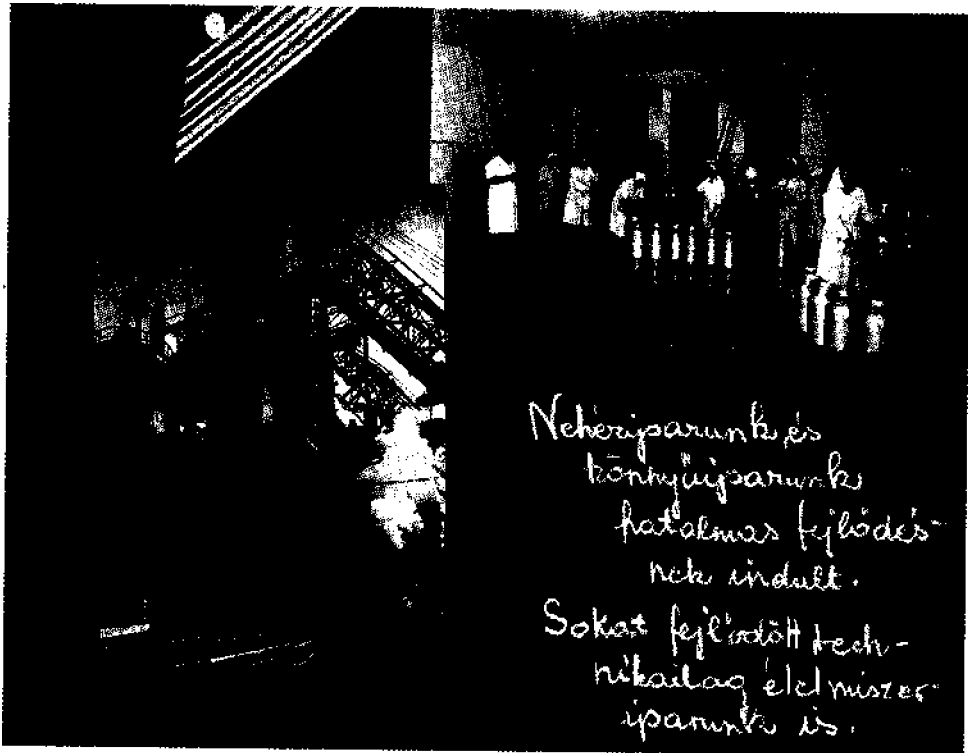 Nehéziparunk és
könnyűiparunk
hatalmas fejlődés-
nek indult.
Sokat fejlődött tech-
nikailag élelmiszer-
iparunk is.